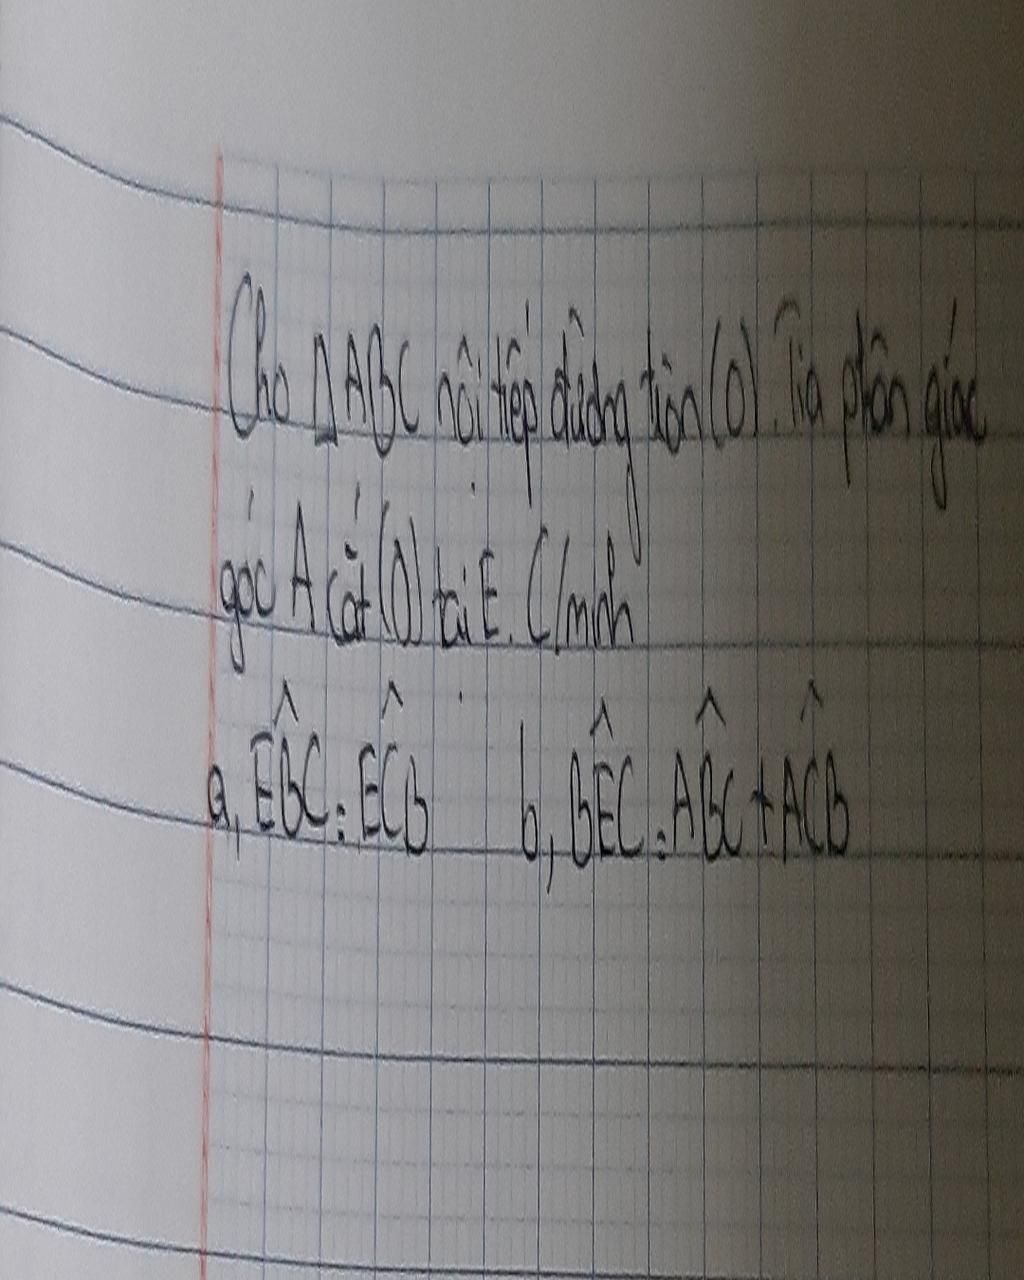 Cho ΔABC nội tiếp đường tròn (O). Tia phân giác
góc A cắt (O) tại E. C/minh
a, EB̂C = EĈB b, BÊC = AB̂C + AĈB